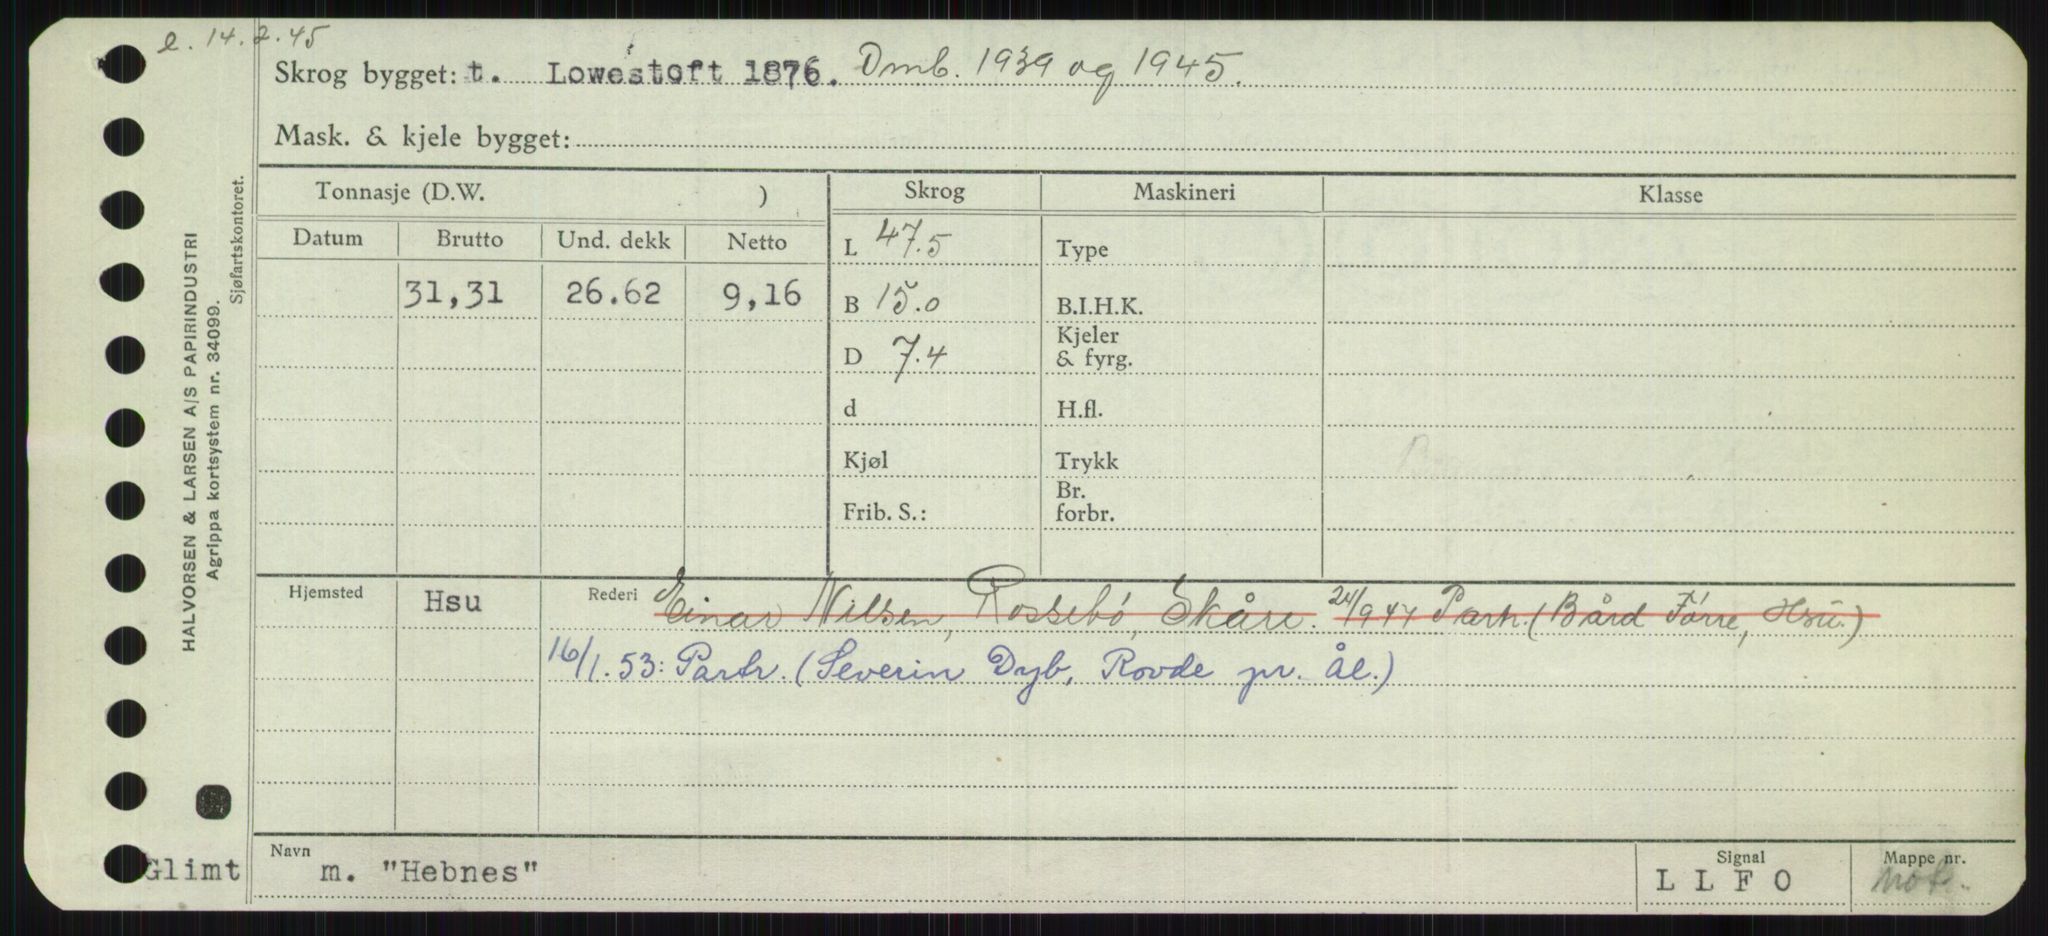 e. 14.2.45
Skrog bygget: t. Lowestoft 1876. Omb. 1939 og 1945.
Mask. & kjele bygget:
HALVORSEN & LARSEN A/S PAPIRINDUSTRI
Agrippa kortsystem nr. 34099.
Sjøfartskontoret.
Tonnasje (D.W. ) Skrog Maskineri Klasse
Datum Brutto Und. dekk Netto L 47.5 Type
31,31 26.62 9,16 B 15.0 B.I.H.K.
D 7.4 Kjeler & fyrg.
d H.fl.
Kjøl Trykk
Frib. S.: Br. forbr.
Hjemsted Hsu Rederi Einar Nilsen, Rossebö, Skåre. 24/9 47 Partr. (Bård Førre, Hsu.)
16/1.53: Partr. (Severin Dyb, Rovde pr. Ål.)
Glimt Navn m. "Hebnes" Signal L L F O Mappe nr. Mot.